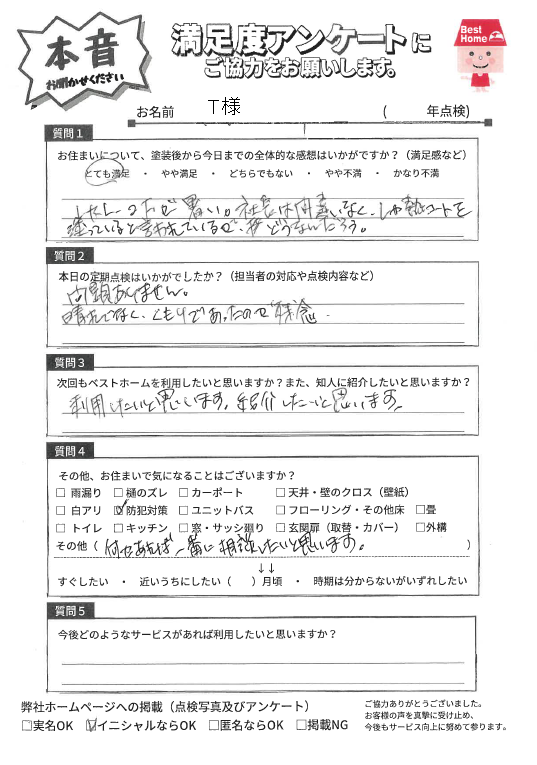 本音
お聞かせください
満足度アンケートに
ご協力をお願いします。
Best Home
お名前 T様 ( 年点検)
質問1
お住まいについて、塗装後から今日までの全体的な感想はいかがですか？（満足感など）
とても満足 ・ やや満足 ・ どちらでもない ・ やや不満 ・ かなり不満
暑い。社長は間違いなく、しゃ熱コートを
塗っていると言われているが、どうなんだろう。
質問2
本日の定期点検はいかがでしたか？（担当者の対応や点検内容など）
問題ありません。
晴れでなく、くもりであったので残念.
質問3
次回もベストホームを利用したいと思いますか？また、知人に紹介したいと思いますか？
利用したいと思います。紹介したいと思います。
質問4
その他、お住まいで気になることはございますか？
□ 雨漏り □ 樋のズレ □ カーポート □ 天井・壁のクロス（壁紙）
□ 白アリ ☑ 防犯対策 □ ユニットバス □ フローリング・その他床 □畳
□ トイレ □ キッチン □ 窓・サッシ廻り □ 玄関扉（取替・カバー） □外構
その他（ 何かあれば一番に相談したいと思います。 ）
↓↓
すぐしたい ・ 近いうちにしたい（ ）月頃 ・ 時期は分からないがいずれしたい
質問5
今後どのようなサービスがあれば利用したいと思いますか？
弊社ホームページへの掲載（点検写真及びアンケート）
□実名OK ☑イニシャルならOK □匿名ならOK □掲載NG
ご協力ありがとうございました。
お客様の声を真摯に受け止め、
今後もサービス向上に努めて参ります。